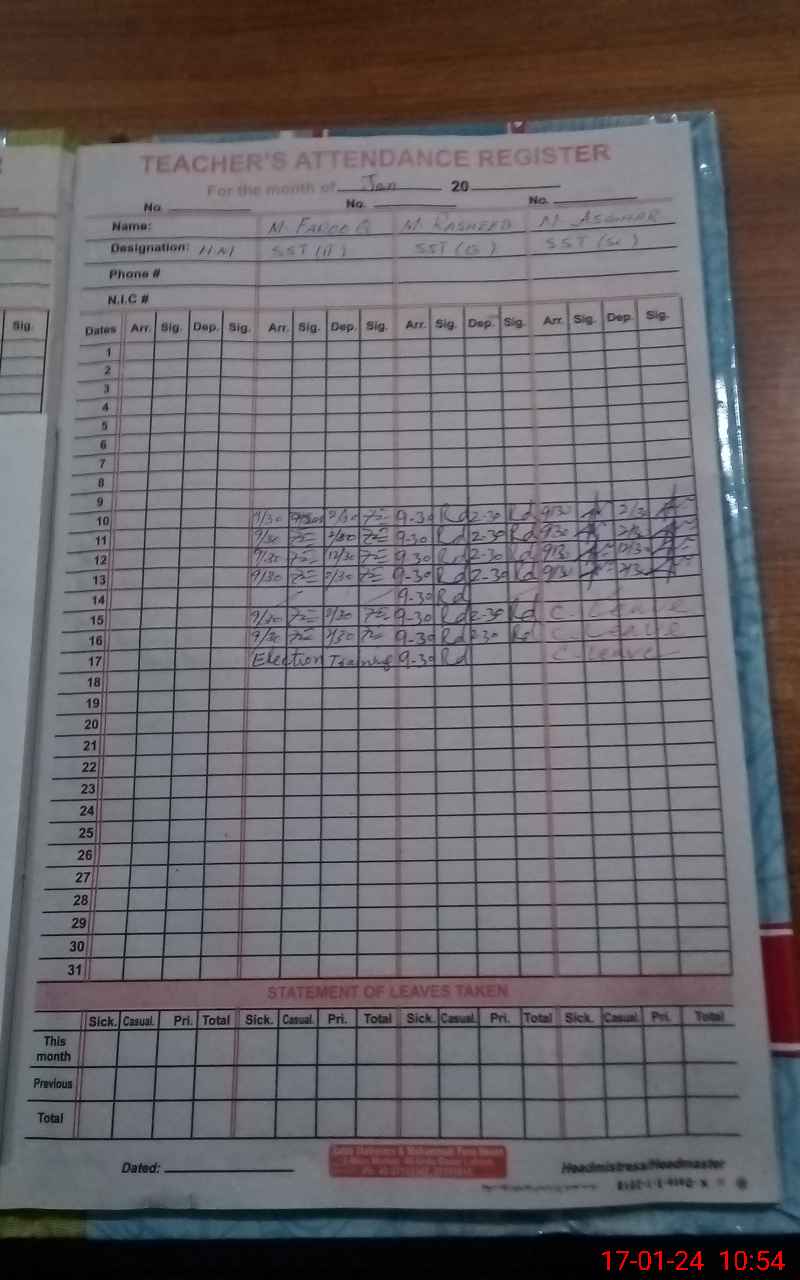 TEACHER'S ATTENDANCE REGISTER
For the month of Jan 20
No. No. No.
Name: M. FAROOQ M. RASHEED M. ASGHAR
Designation: H/M SST (IT) SST (G) SST (Sc)
Phone #
N.I.C #
Sig.
Dates Arr. Sig. Dep. Sig. Arr. Sig. Dep. Sig. Arr. Sig. Dep. Sig. Arr. Sig. Dep. Sig.
1
2
3
4
5
6
7
8
9
10 9/30 2/30 9-30 Rd 2-30 Rd 9/30 2/30
11 9/30 2/30 9-30 Rd 2-30 Rd 9/30 2/30
12 9/30 12/30 9-30 Rd 2-30 Rd 9/30 12/30
13 9/30 2/30 9-30 Rd 2-30 Rd 9/30 2/30
14 9-30 Rd
15 9/30 2/30 9-30 Rd 2-30 Rd C. Leave
16 9/30 2/30 9-30 Rd 2-30 Rd C. Leave
17 Election Training 9-30 Rd C-Leave
18
19
20
21
22
23
24
25
26
27
28
29
30
31
STATEMENT OF LEAVES TAKEN
Sick. Casual. Pri. Total Sick. Casual. Pri. Total Sick. Casual. Pri. Total Sick. Casual. Pri. Total
This month
Previous
Total
Dated: Headmistress/Headmaster
17-01-24 10:54